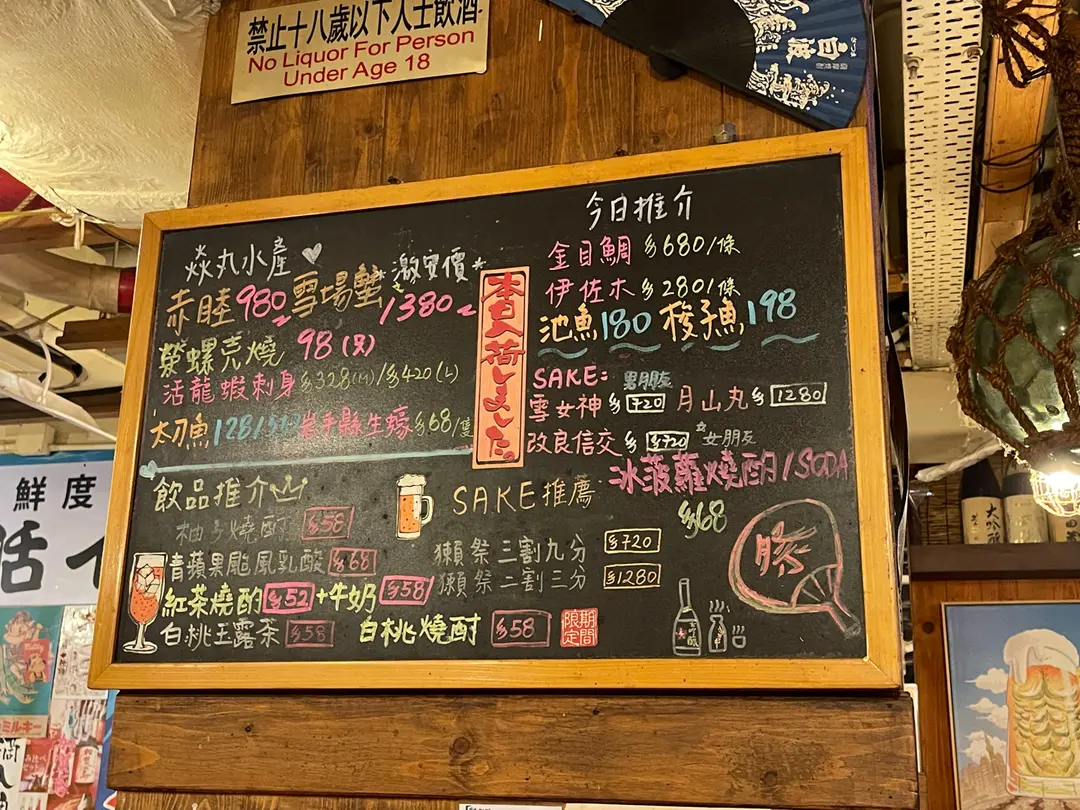 禁止十八歲以下人士飲酒
No Liquor For Person
Under Age 18
白波
今日推介
焱丸水產
激安價
赤睦980
雪場蟹
1380
榮螺売燒 98(只)
活龍蝦刺身 $328(M)/$420(L)
太刀魚128
岩手縣生蠔$68/隻
本日入荷しました。
金目鯛 $680/條
伊佐木 $280/條
池魚180 梭子魚198
SAKE: 男朋友
雪女神 $720 月山丸 $1280
改良信交 $720 女朋友
冰菠蘿燒酌/SODA
$68
飲品推介
柚子燒酎 $58
青蘋果颱風乳酸 $68
紅茶燒酌 $52 +牛奶 $58
白桃玉露茶 $58
白桃燒酎 $58
期間
限定
SAKE推薦
獺祭三割九分 $720
獺祭二割三分 $1280
鮮度
活
ミルキー
大吟